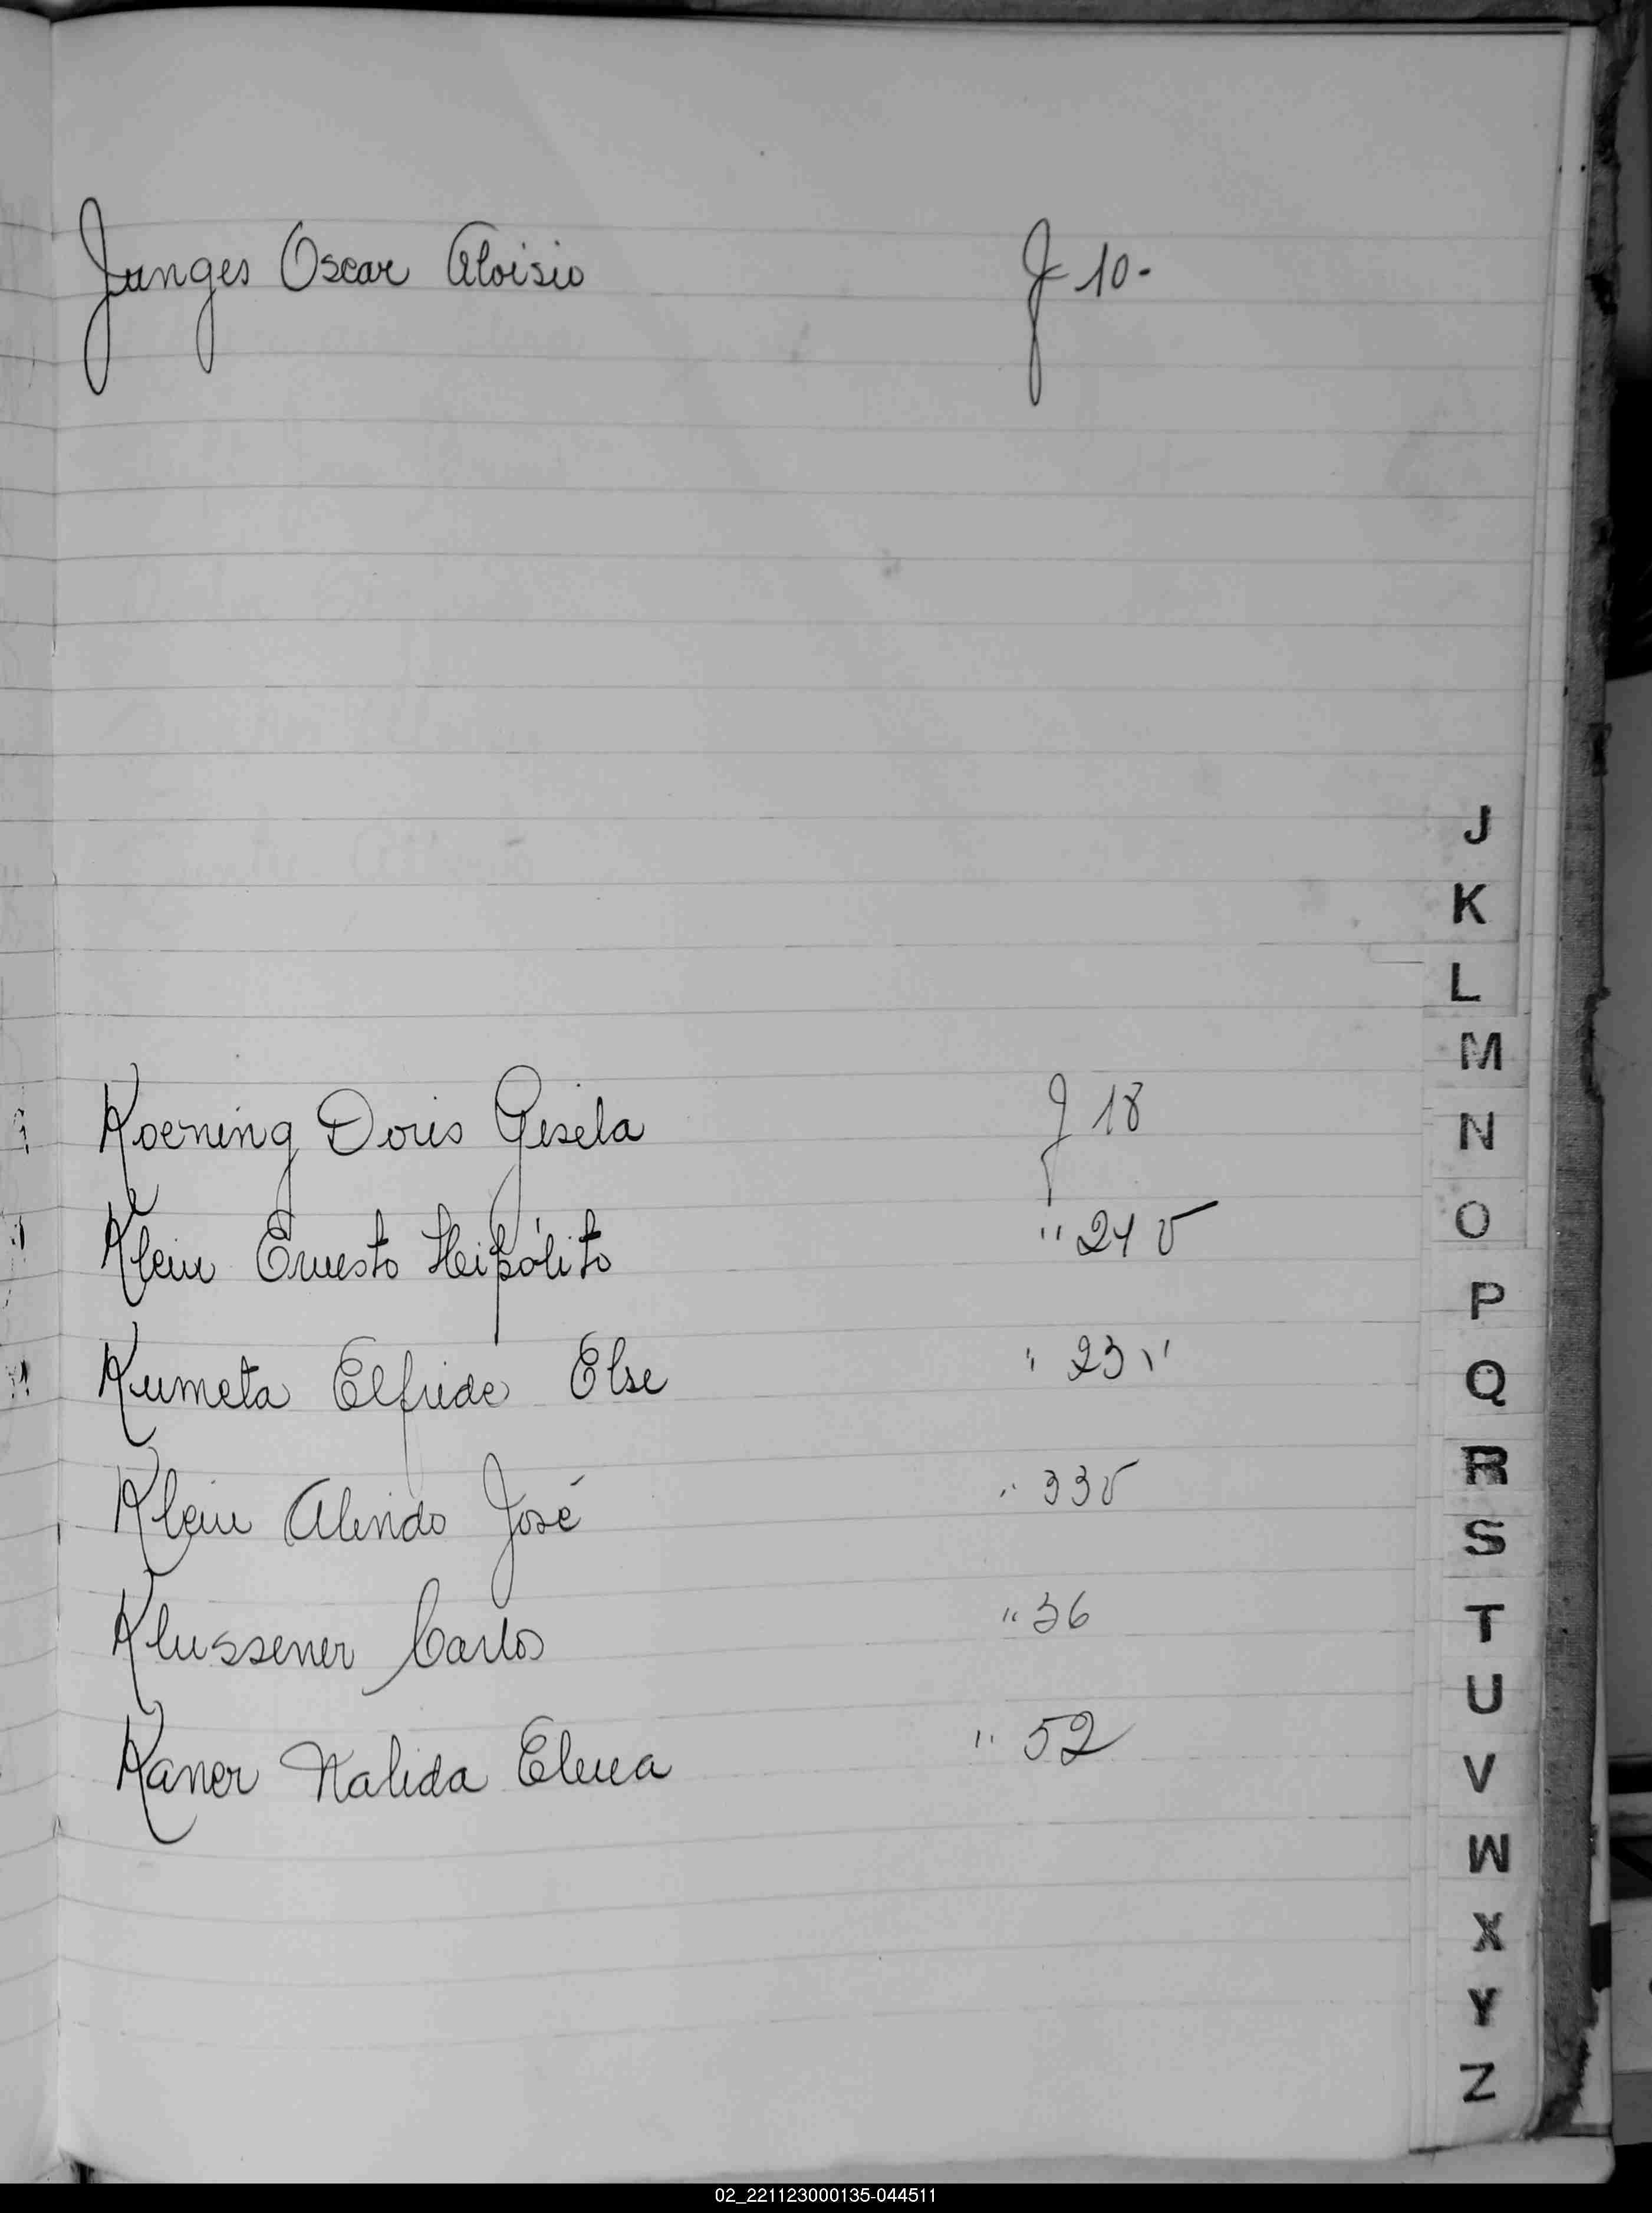 Junges Oscar Aloisio f 10-
J
K
L
M
Koening Doris Gisela f 18
N
Klein Ernesto Heipólito " 24 v
O
P
Kumeta Elfride Else " 23 v
Q
Klein Alindo José " 33v
R
S
Klussener Carlos " 36
T
U
Kaner Nalida Elena " 52
V
W
X
Y
Z
02_221123000135-044511